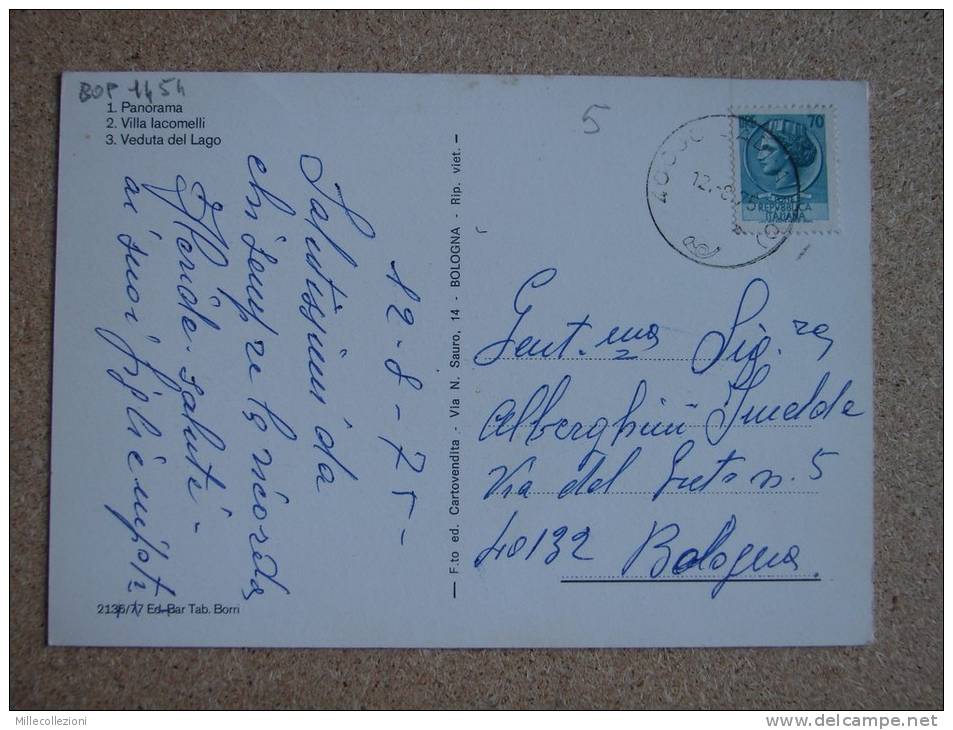 BOP 1454
1. Panorama
2. Villa Iacomelli
3. Veduta del Lago
12-8-75-
Salutissimi da
chi sempre la ricorda
Meride. Saluti-
ai suoi figli e nipoti
2136/77 Ed. Bar Tab. Borri
F.to ed. Cartovendita - Via N. Sauro, 14 - BOLOGNA - Rip. viet.
5
70
REPVBBLICA
ITALIANA
12.-8.75
Gent.ma Sig.ra
Alberghini Imelda
Via del Greto n. 5
40132 Bologna
Millecollezioni
www.delcampe.net